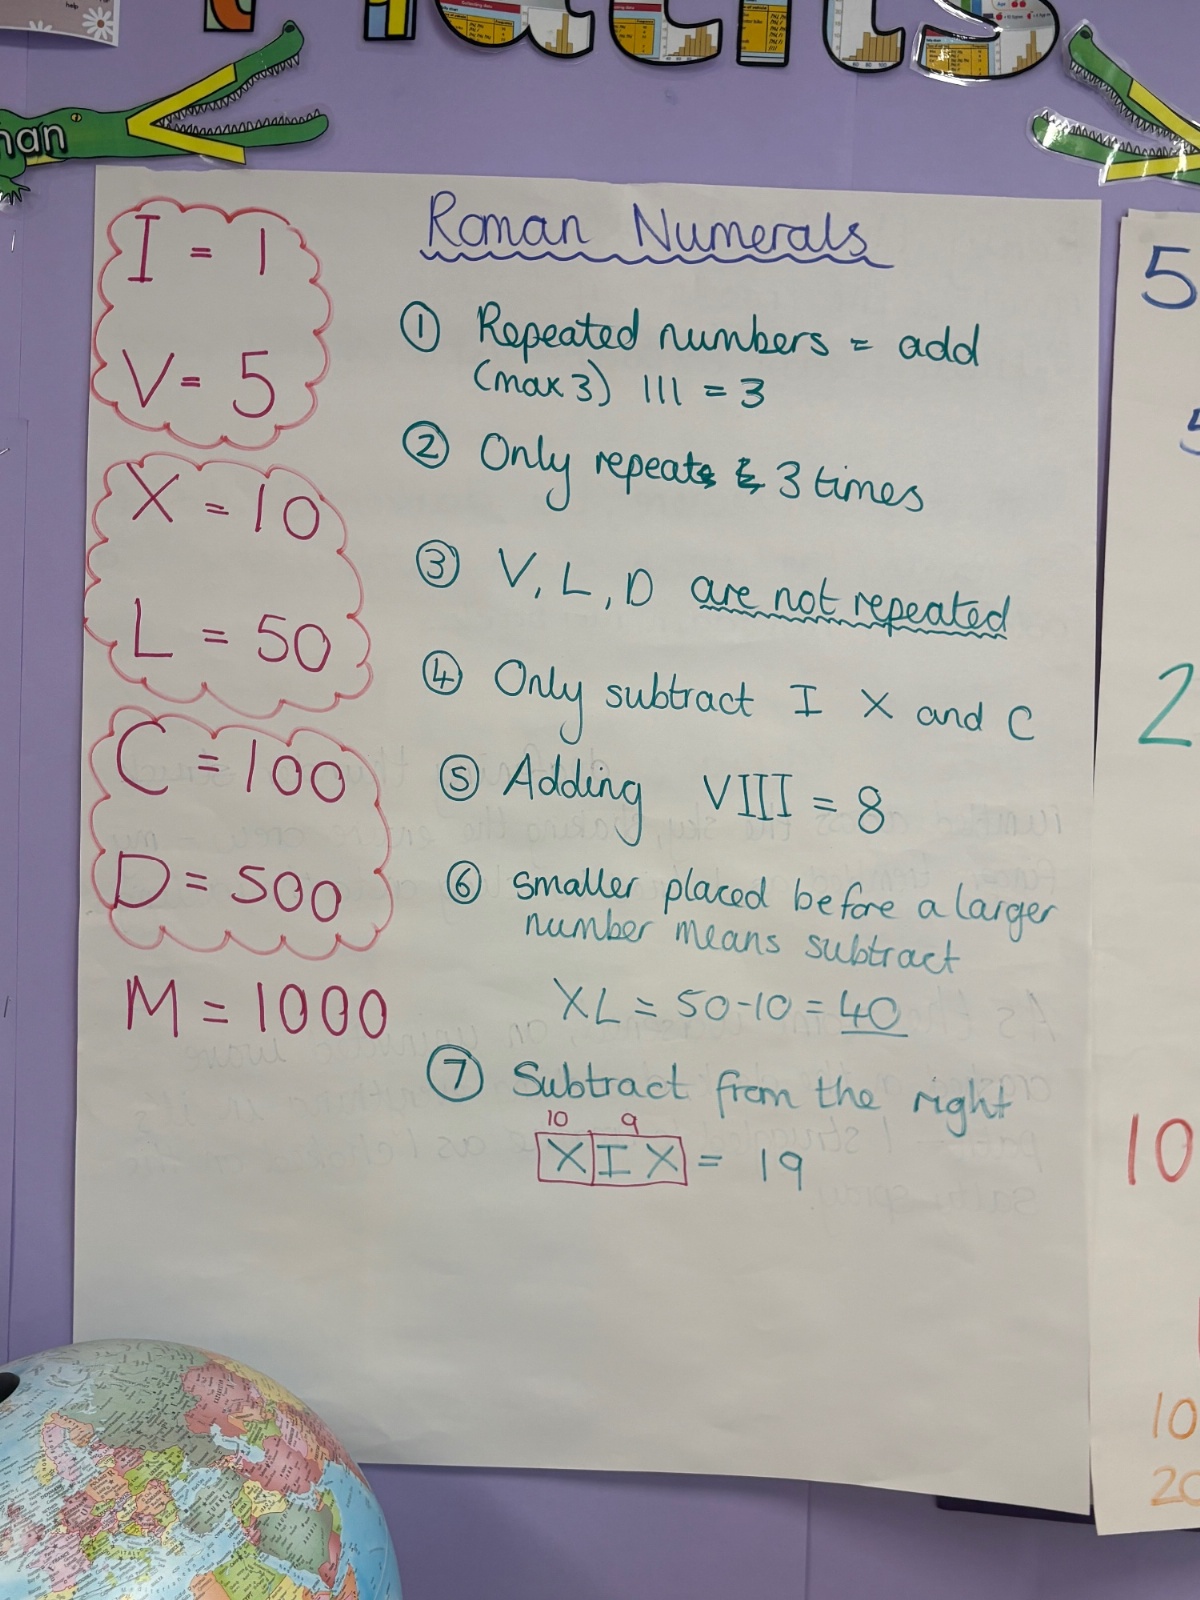 Maths
man
I = 1
V = 5
X = 10
L = 50
C = 100
D = 500
M = 1000
Roman Numerals
① Repeated numbers = add
(max 3) III = 3
② Only repeats 3 times
③ V, L, D are not repeated
④ Only subtract I X and C
⑤ Adding VIII = 8
⑥ smaller placed before a larger
number means subtract
XL = 50-10 = 40
⑦ Subtract from the right
10 9
X I X = 19
5
2
10
10
20